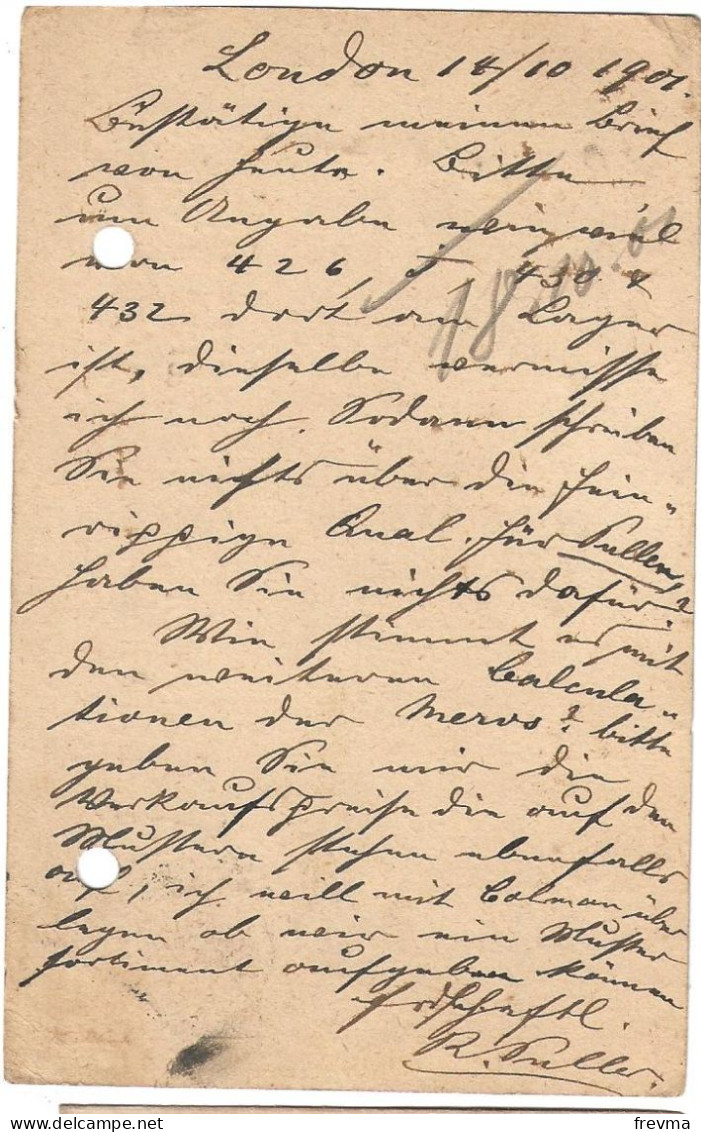 London 14/10 1901.
Bestätige meinen Brief
von heute. Bitte
um Angabe wie viel
von 426, 430 &
432 dort am Lager
ist, dieselbe vermisse
ich noch. Sodann schreiben
Sie nichts über die fein-
rippige Qual. für
haben Sie nichts dafür?
Wie stimmt es mit
den weiteren Calcula-
tionen der Mervs? bitte
geben Sie mir die
Verkaufspreise die auf den
Mustern stehen ebenfalls
auf, ich will mit Colman über
legen ob wir ein Muster
sortiment aufgeben können
18/10.01
R.
frevma